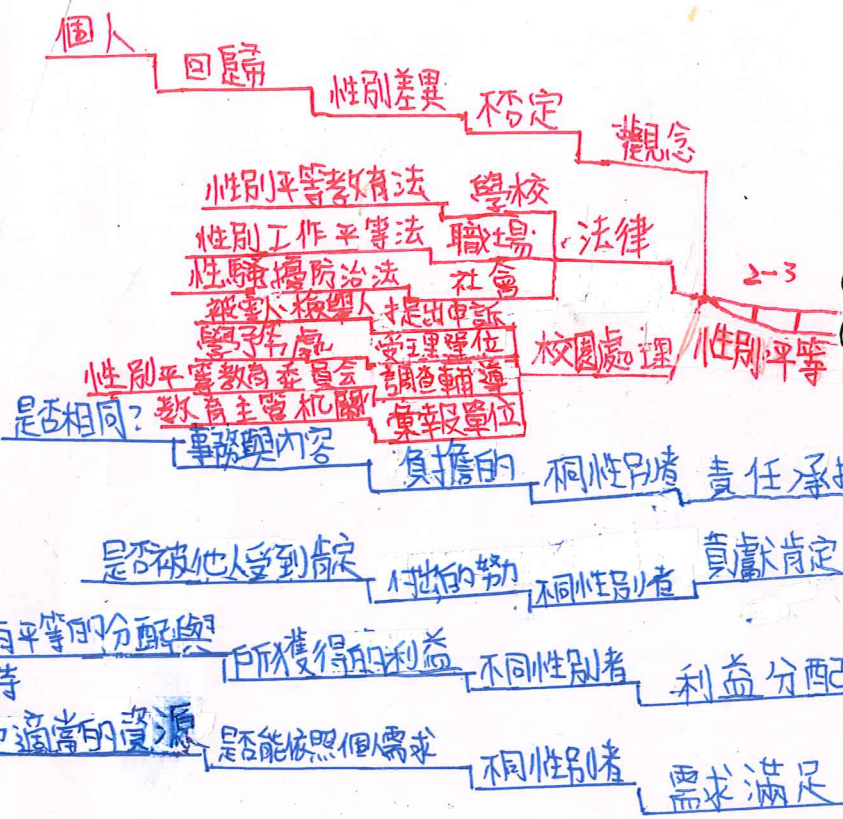 個人
回歸
性別差異
不否定
觀念
性別平等教育法
學校
性別工作平等法
職場
法律
性騷擾防治法
社會
2-3
被害人、檢舉人
提出申訴
學務處
受理單位
校園處理
性別平等
性別平等教育委員會
調查輔導
教育主管机關
彙報單位
是否相同?
事務與內容
負擔的
不同性別者
責任承
是否被他人受到肯定
付出的努力
不同性別者
貢獻肯定
平等的分配與
所獲得的利益
不同性別者
利益分配
適當的資源
是否能依照個人需求
不同性別者
需求滿足